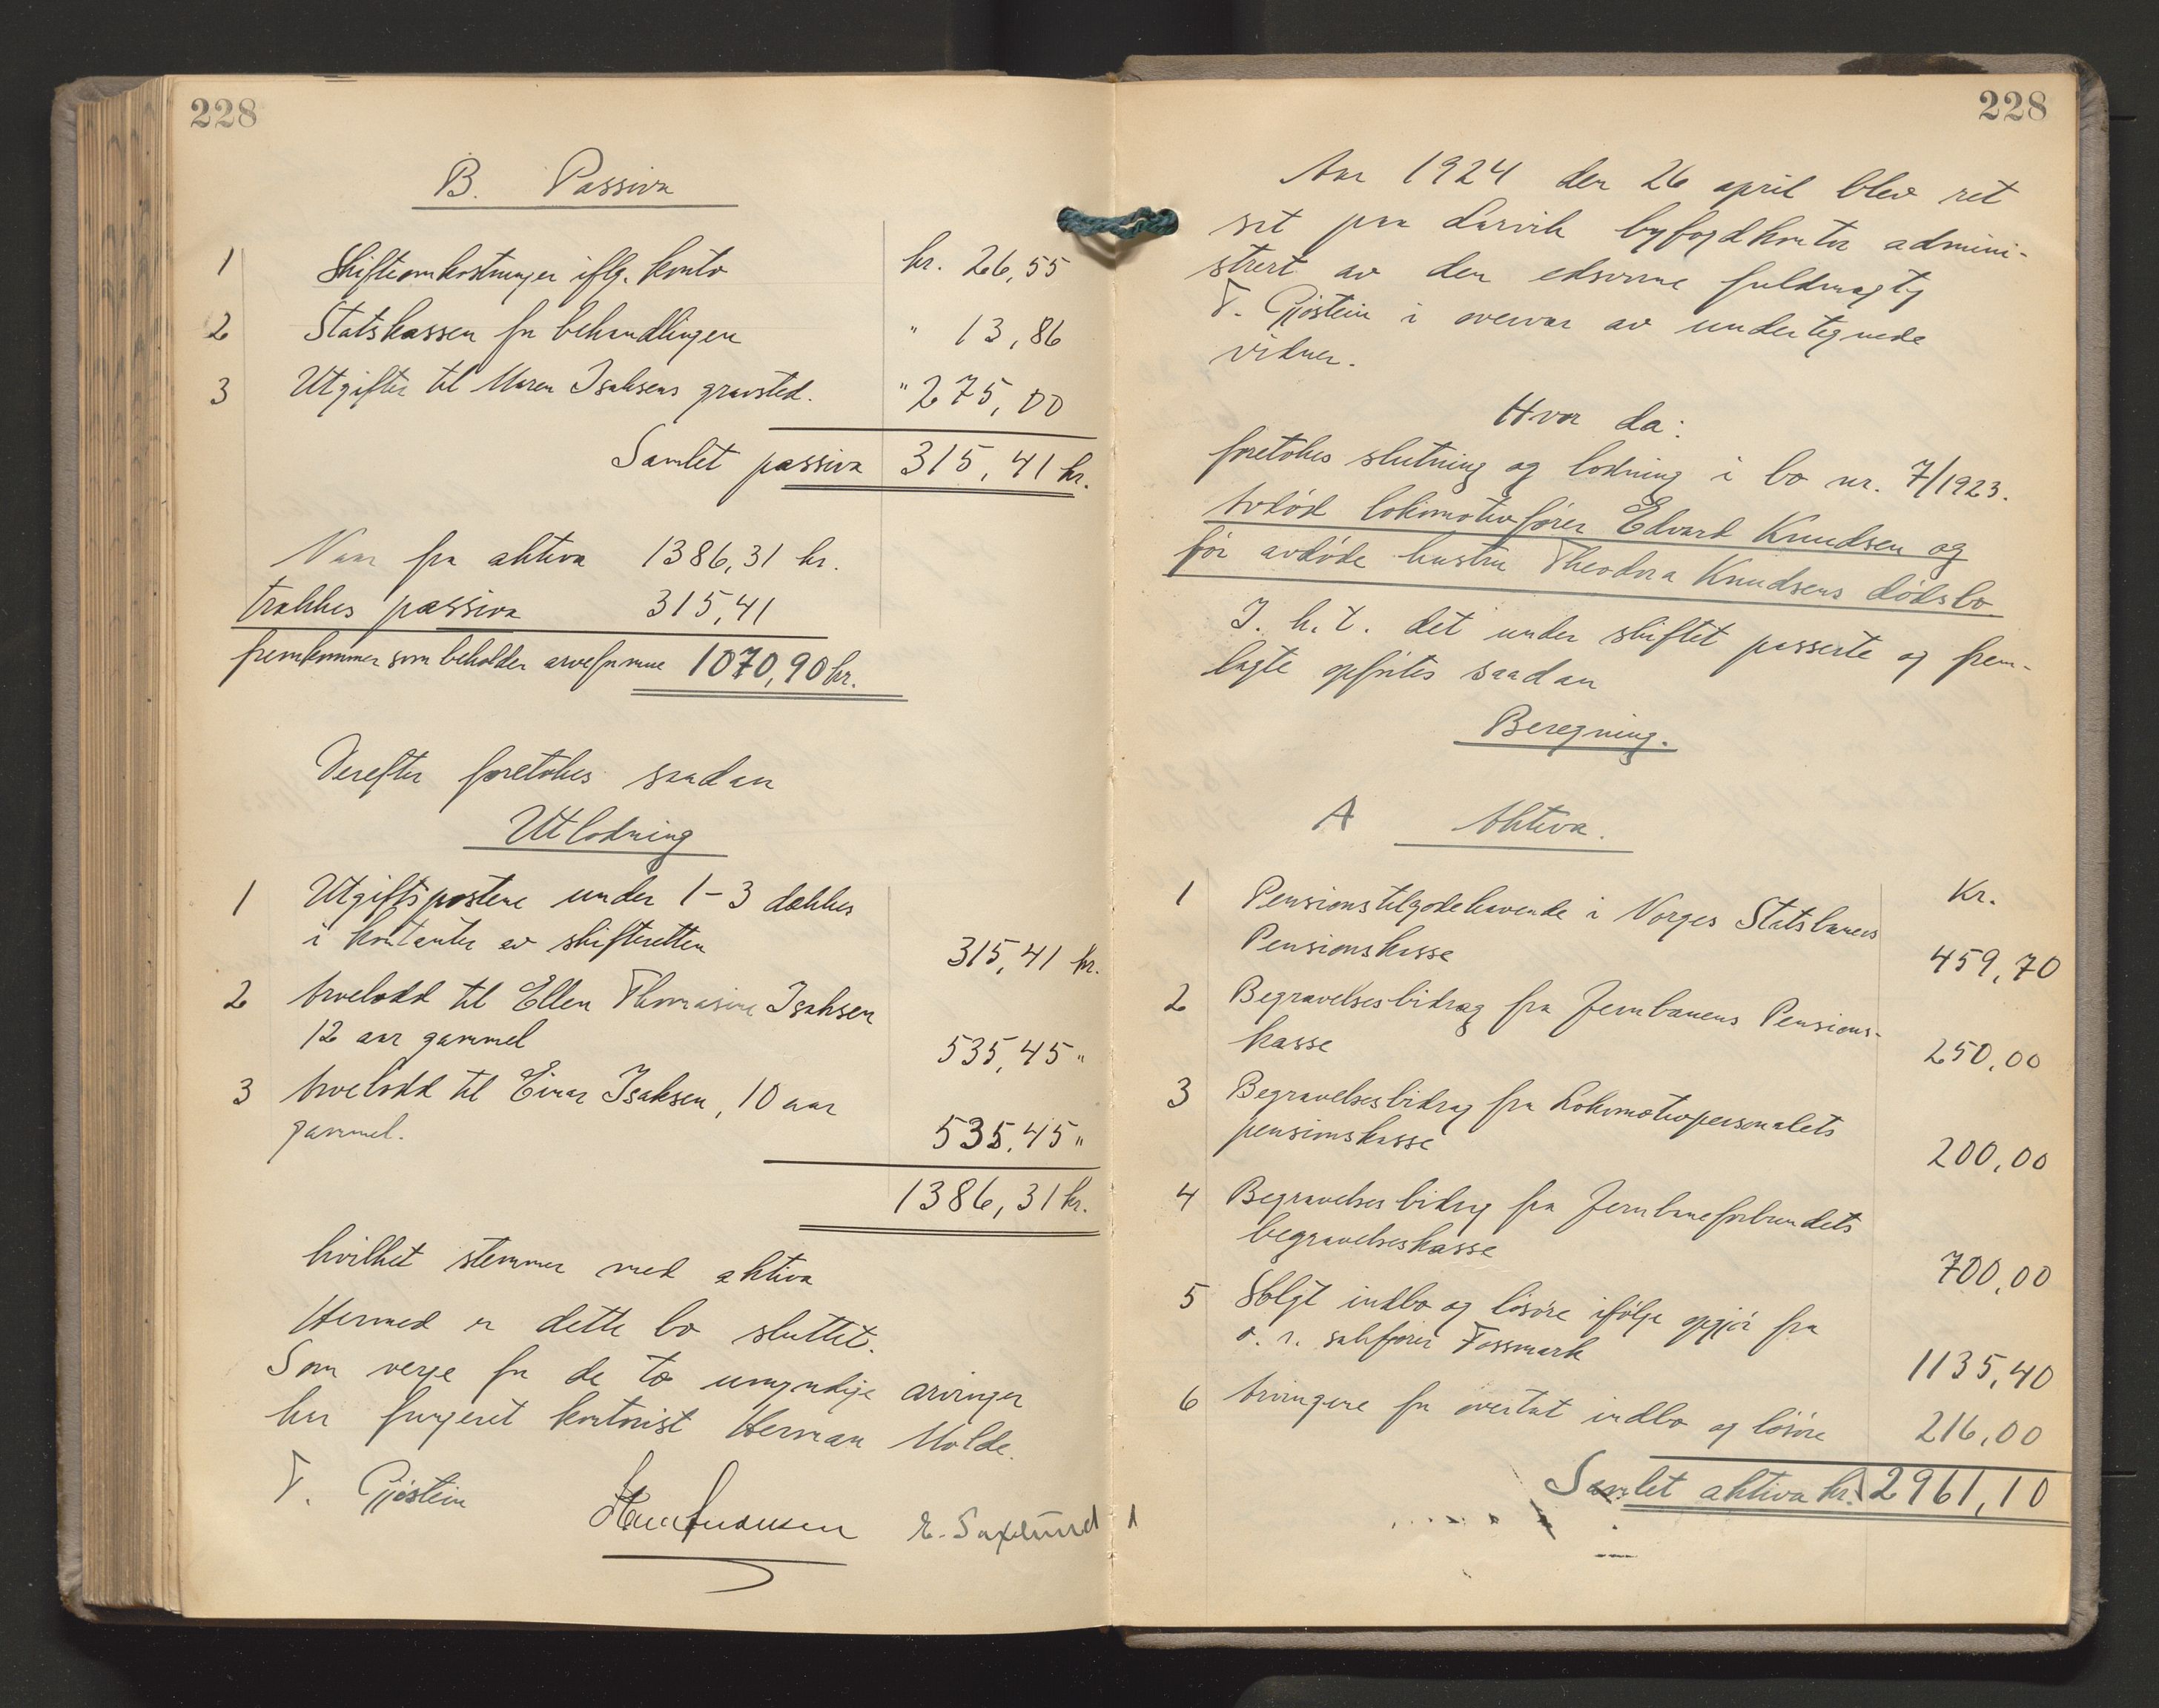 228
B. Passiva
1 Skifteomkostninger iflg. konto kr. 26,55
2 Statskassen for behandlingen " 13,86
3 Utgifter til Maren Isaksens gravsted. " 275,00
Samlet passiva 315,41 kr.
Naar fra aktiva 1386,31 kr.
trækkes passiva 315,41
fremkommer som beholden arveformue 1070,90 kr.
Derefter foretokes saadan
Utlodning
1 Utgiftspostene under 1-3 dækkes
i kontanter av skifteretten 315,41 kr.
2 Arvelodd til Ellen Thomasine Isaksen
12 aar gammel 535,45 "
3 Arvelodd til Einar Isaksen, 10 aar
gammel. 535,45 "
1386,31 kr.
hvilket stemmer med aktiva
Hermed er dette bo sluttet.
Som verje for de to umyndige arvinger
har fungeret kontorist Herman Molde.
T. Gjøstein E. Saxlund
228
Aar 1924 den 26 april blev ret
sat paa Larvik byfogdkontor admini-
strert av den edsvorne fuldmægtig
T. Gjøstein i overvær av undertegnede
vidner.
Hvor da:
foretokes slutning og lodning i bo nr. 7/1923.
Avdød lokomotivfører Edvard Knudsen og
før avdøde hustru Theodora Knudsens dødsbo
I. h. t. det under skiftet passerte og frem-
lagte opførtes saadan
Beregning.
A Aktiva.
Kr.
1 Pensionstilgodehavende i Norges Statsbaners
Pensionskasse 459,70
2 Begravelsesbidrag fra Jernbanens Pensions-
kasse 250,00
3 Begravelsesbidrag fra Lokomotivpersonalets
pensionskasse 200,00
4 Begravelsesbidrag fra Jernbaneforbundets
begravelseskasse 700,00
5 Solgt indbo og løsøre ifølge opgjør fra
o. r. sakfører Fossmark 1135,40
6 Arvingene for overtat indbo og løsøre 216,00
Samlet aktiva kr. 2961,10